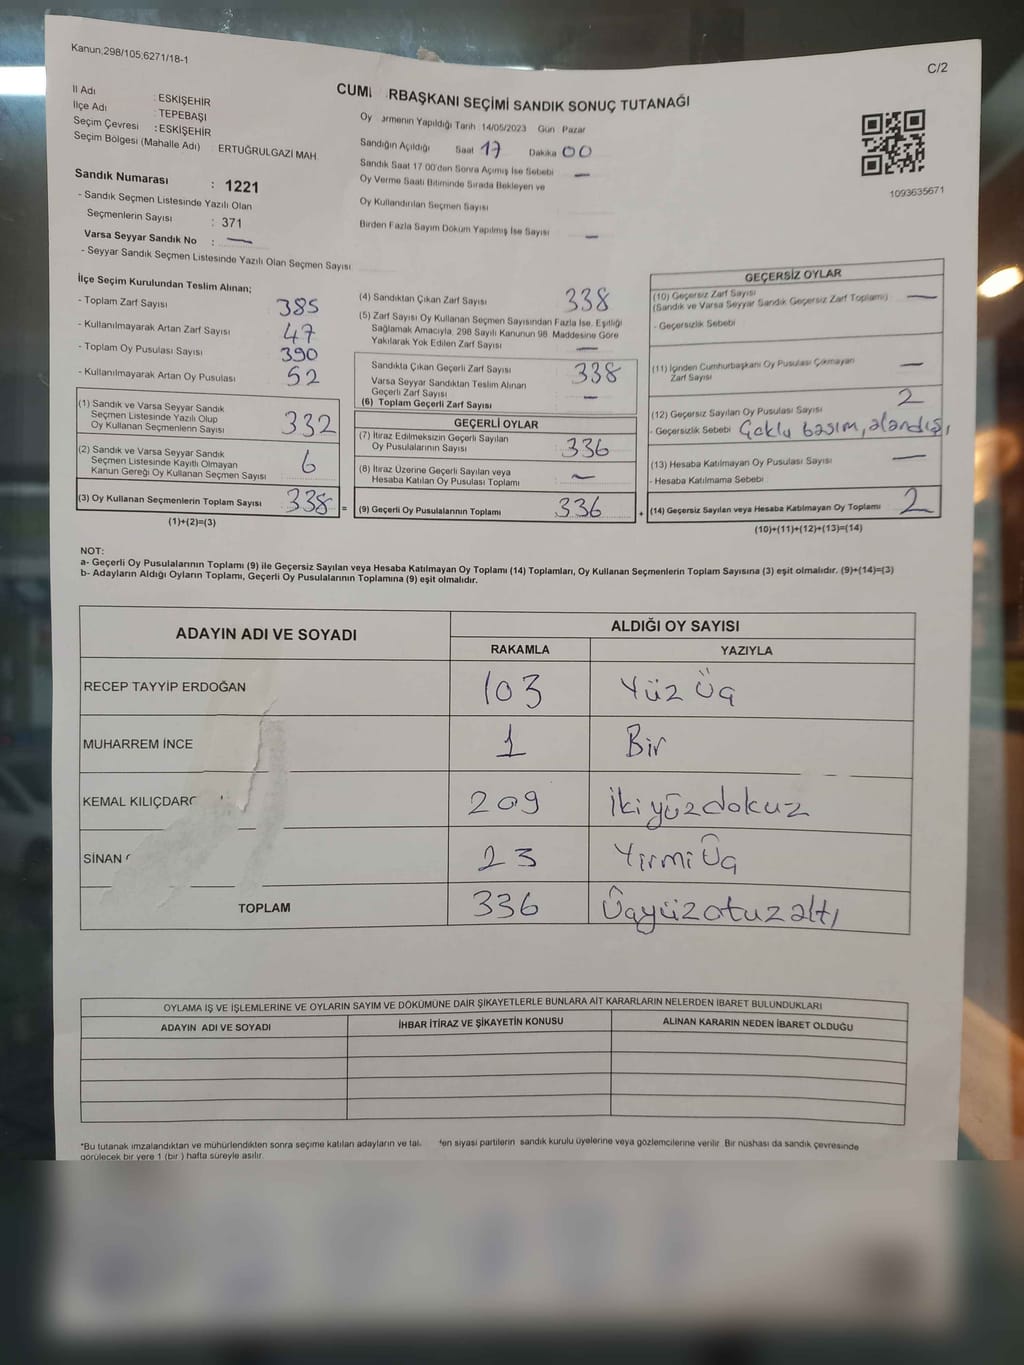 Kanun;298/105,6271/18-1
C/2
İl Adı : ESKİŞEHİR
İlçe Adı : TEPEBAŞI
Seçim Çevresi : ESKİŞEHİR
Seçim Bölgesi (Mahalle Adı) : ERTUĞRULGAZİ MAH.
Sandık Numarası : 1221
- Sandık Seçmen Listesinde Yazılı Olan
Seçmenlerin Sayısı : 371
Varsa Seyyar Sandık No : —
- Seyyar Sandık Seçmen Listesinde Yazılı Olan Seçmen Sayısı
CUM RBAŞKANI SEÇİMİ SANDIK SONUÇ TUTANAĞI
Oy ermenin Yapıldığı Tarih : 14/05/2023 Gün : Pazar
Sandığın Açıldığı Saat 17 Dakika 00
Sandık Saat 17:00'den Sonra Açımış İse Sebebi —
Oy Verme Saati Bitiminde Sırada Bekleyen ve
Oy Kullandırılan Seçmen Sayısı
Birden Fazla Sayım Döküm Yapılmış İse Sayısı —
1093635671
İlçe Seçim Kurulundan Teslim Alınan;
- Toplam Zarf Sayısı 385
- Kullanılmayarak Artan Zarf Sayısı 47
- Toplam Oy Pusulası Sayısı 390
- Kullanılmayarak Artan Oy Pusulası 52
(1) Sandık ve Varsa Seyyar Sandık
Seçmen Listesinde Yazılı Olup
Oy Kullanan Seçmenlerin Sayısı 332
(2) Sandık ve Varsa Seyyar Sandık
Seçmen Listesinde Kayıtlı Olmayan
Kanun Gereği Oy Kullanan Seçmen Sayısı 6
(3) Oy Kullanan Seçmenlerin Toplam Sayısı 338 =
(1)+(2)=(3)
(4) Sandıktan Çıkan Zarf Sayısı 338
(5) Zarf Sayısı Oy Kullanan Seçmen Sayısından Fazla İse, Eşitliği
Sağlamak Amacıyla, 298 Sayılı Kanunun 98. Maddesine Göre
Yakılarak Yok Edilen Zarf Sayısı —
Sandıkta Çıkan Geçerli Zarf Sayısı 338
Varsa Seyyar Sandıktan Teslim Alınan
Geçerli Zarf Sayısı —
(6) Toplam Geçerli Zarf Sayısı
GEÇERLİ OYLAR
(7) İtiraz Edilmeksizin Geçerli Sayılan
Oy Pusulalarının Sayısı 336
(8) İtiraz Üzerine Geçerli Sayılan veya
Hesaba Katılan Oy Pusulası Toplamı —
(9) Geçerli Oy Pusulalarının Toplamı 336 +
GEÇERSİZ OYLAR
(10) Geçersiz Zarf Sayısı
(Sandık ve Varsa Seyyar Sandık Geçersiz Zarf Toplamı) —
- Geçersizlik Sebebi
(11) İçinden Cumhurbaşkanı Oy Pusulası Çıkmayan
Zarf Sayısı —
(12) Geçersiz Sayılan Oy Pusulası Sayısı 2
- Geçersizlik Sebebi Çoklu basım, alandışı
(13) Hesaba Katılmayan Oy Pusulası Sayısı —
- Hesaba Katılmama Sebebi
(14) Geçersiz Sayılan veya Hesaba Katılmayan Oy Toplamı 2
(10)+(11)+(12)+(13)=(14)
NOT:
a- Geçerli Oy Pusulalarının Toplamı (9) ile Geçersiz Sayılan veya Hesaba Katılmayan Oy Toplamı (14) Toplamları, Oy Kullanan Seçmenlerin Toplam Sayısına (3) eşit olmalıdır. (9)+(14)=(3)
b- Adayların Aldığı Oyların Toplamı, Geçerli Oy Pusulalarının Toplamına (9) eşit olmalıdır.
ADAYIN ADI VE SOYADI ALDIĞI OY SAYISI
RAKAMLA YAZIYLA
RECEP TAYYİP ERDOĞAN 103 Yüz Üç
MUHARREM İNCE 1 Bir
KEMAL KILIÇDARO 209 İkiyüzdokuz
SİNAN 23 Yirmi Üç
TOPLAM 336 Üçyüzotuzaltı
OYLAMA İŞ VE İŞLEMLERİNE VE OYLARIN SAYIM VE DÖKÜMÜNE DAİR ŞİKAYETLERLE BUNLARA AİT KARARLARIN NELERDEN İBARET BULUNDUKLARI
ADAYIN ADI VE SOYADI İHBAR İTİRAZ VE ŞİKAYETİN KONUSU ALINAN KARARIN NEDEN İBARET OLDUĞU
*Bu tutanak imzalandıktan ve mühürlendikten sonra seçime katılan adayların ve tal en siyasi partilerin sandık kurulu üyelerine veya gözlemcilerine verilir. Bir nüshası da sandık çevresinde
görülecek bir yere 1 (bir ) hafta süreyle asılır.